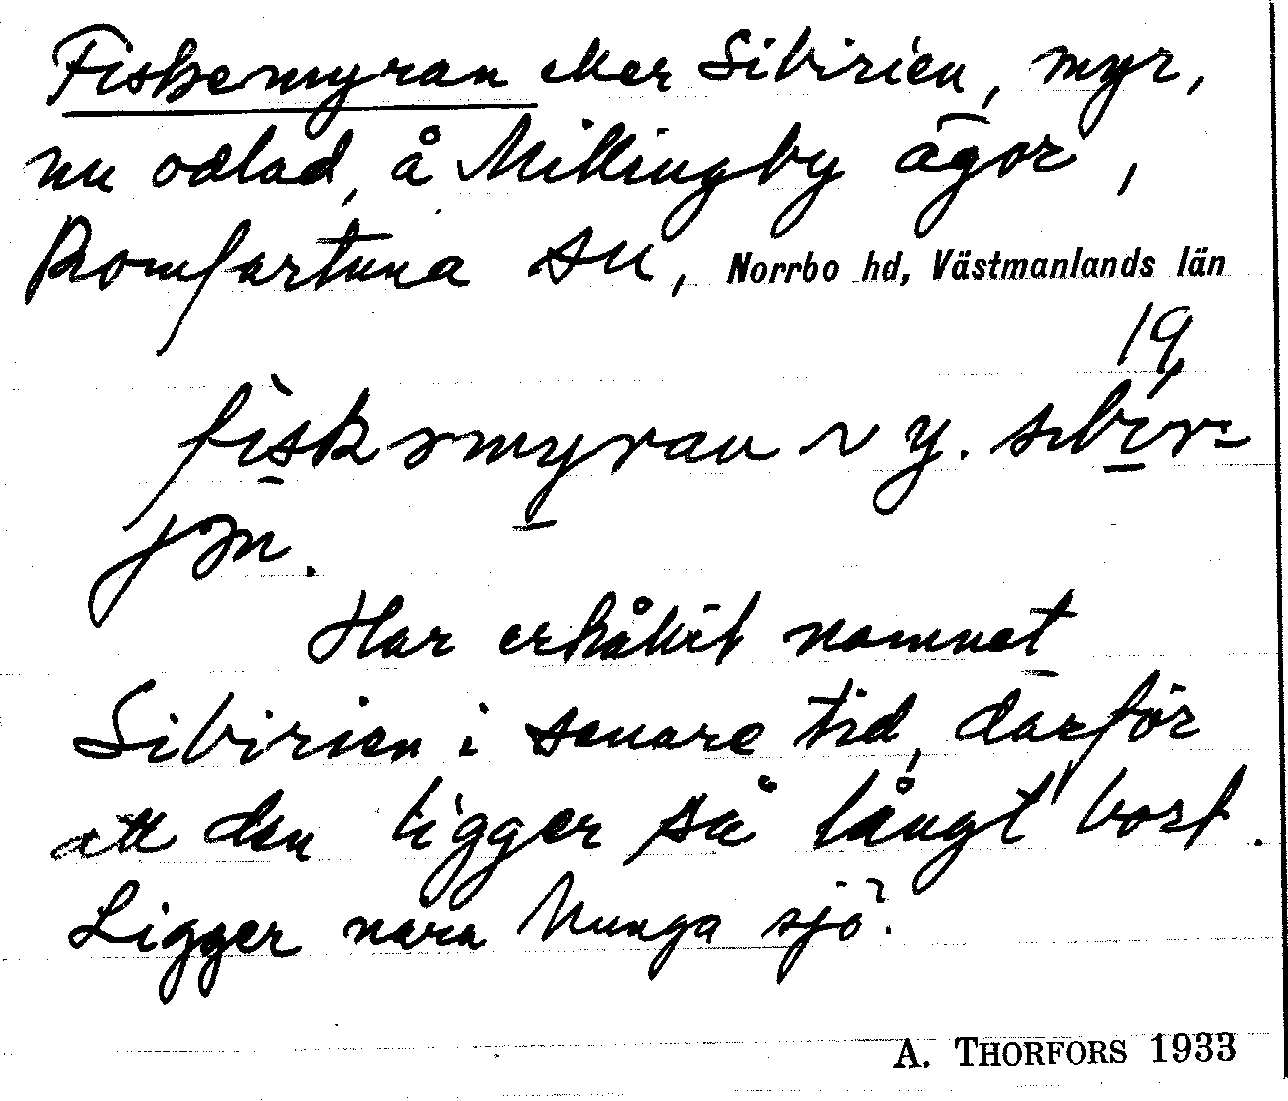 Fiskemyran eller Sibirien, myr,
nu odlad, å Millingby ägor,
Romfartuna sn, Norrbo hd, Västmanlands län
19
fiskəmyran ~ y. sibir-
jən.
Har erhållit namnet
Sibirien i senare tid, därför
att den ligger så långt bort.
Ligger nära Nunga sjö.
A. THORFORS 1933